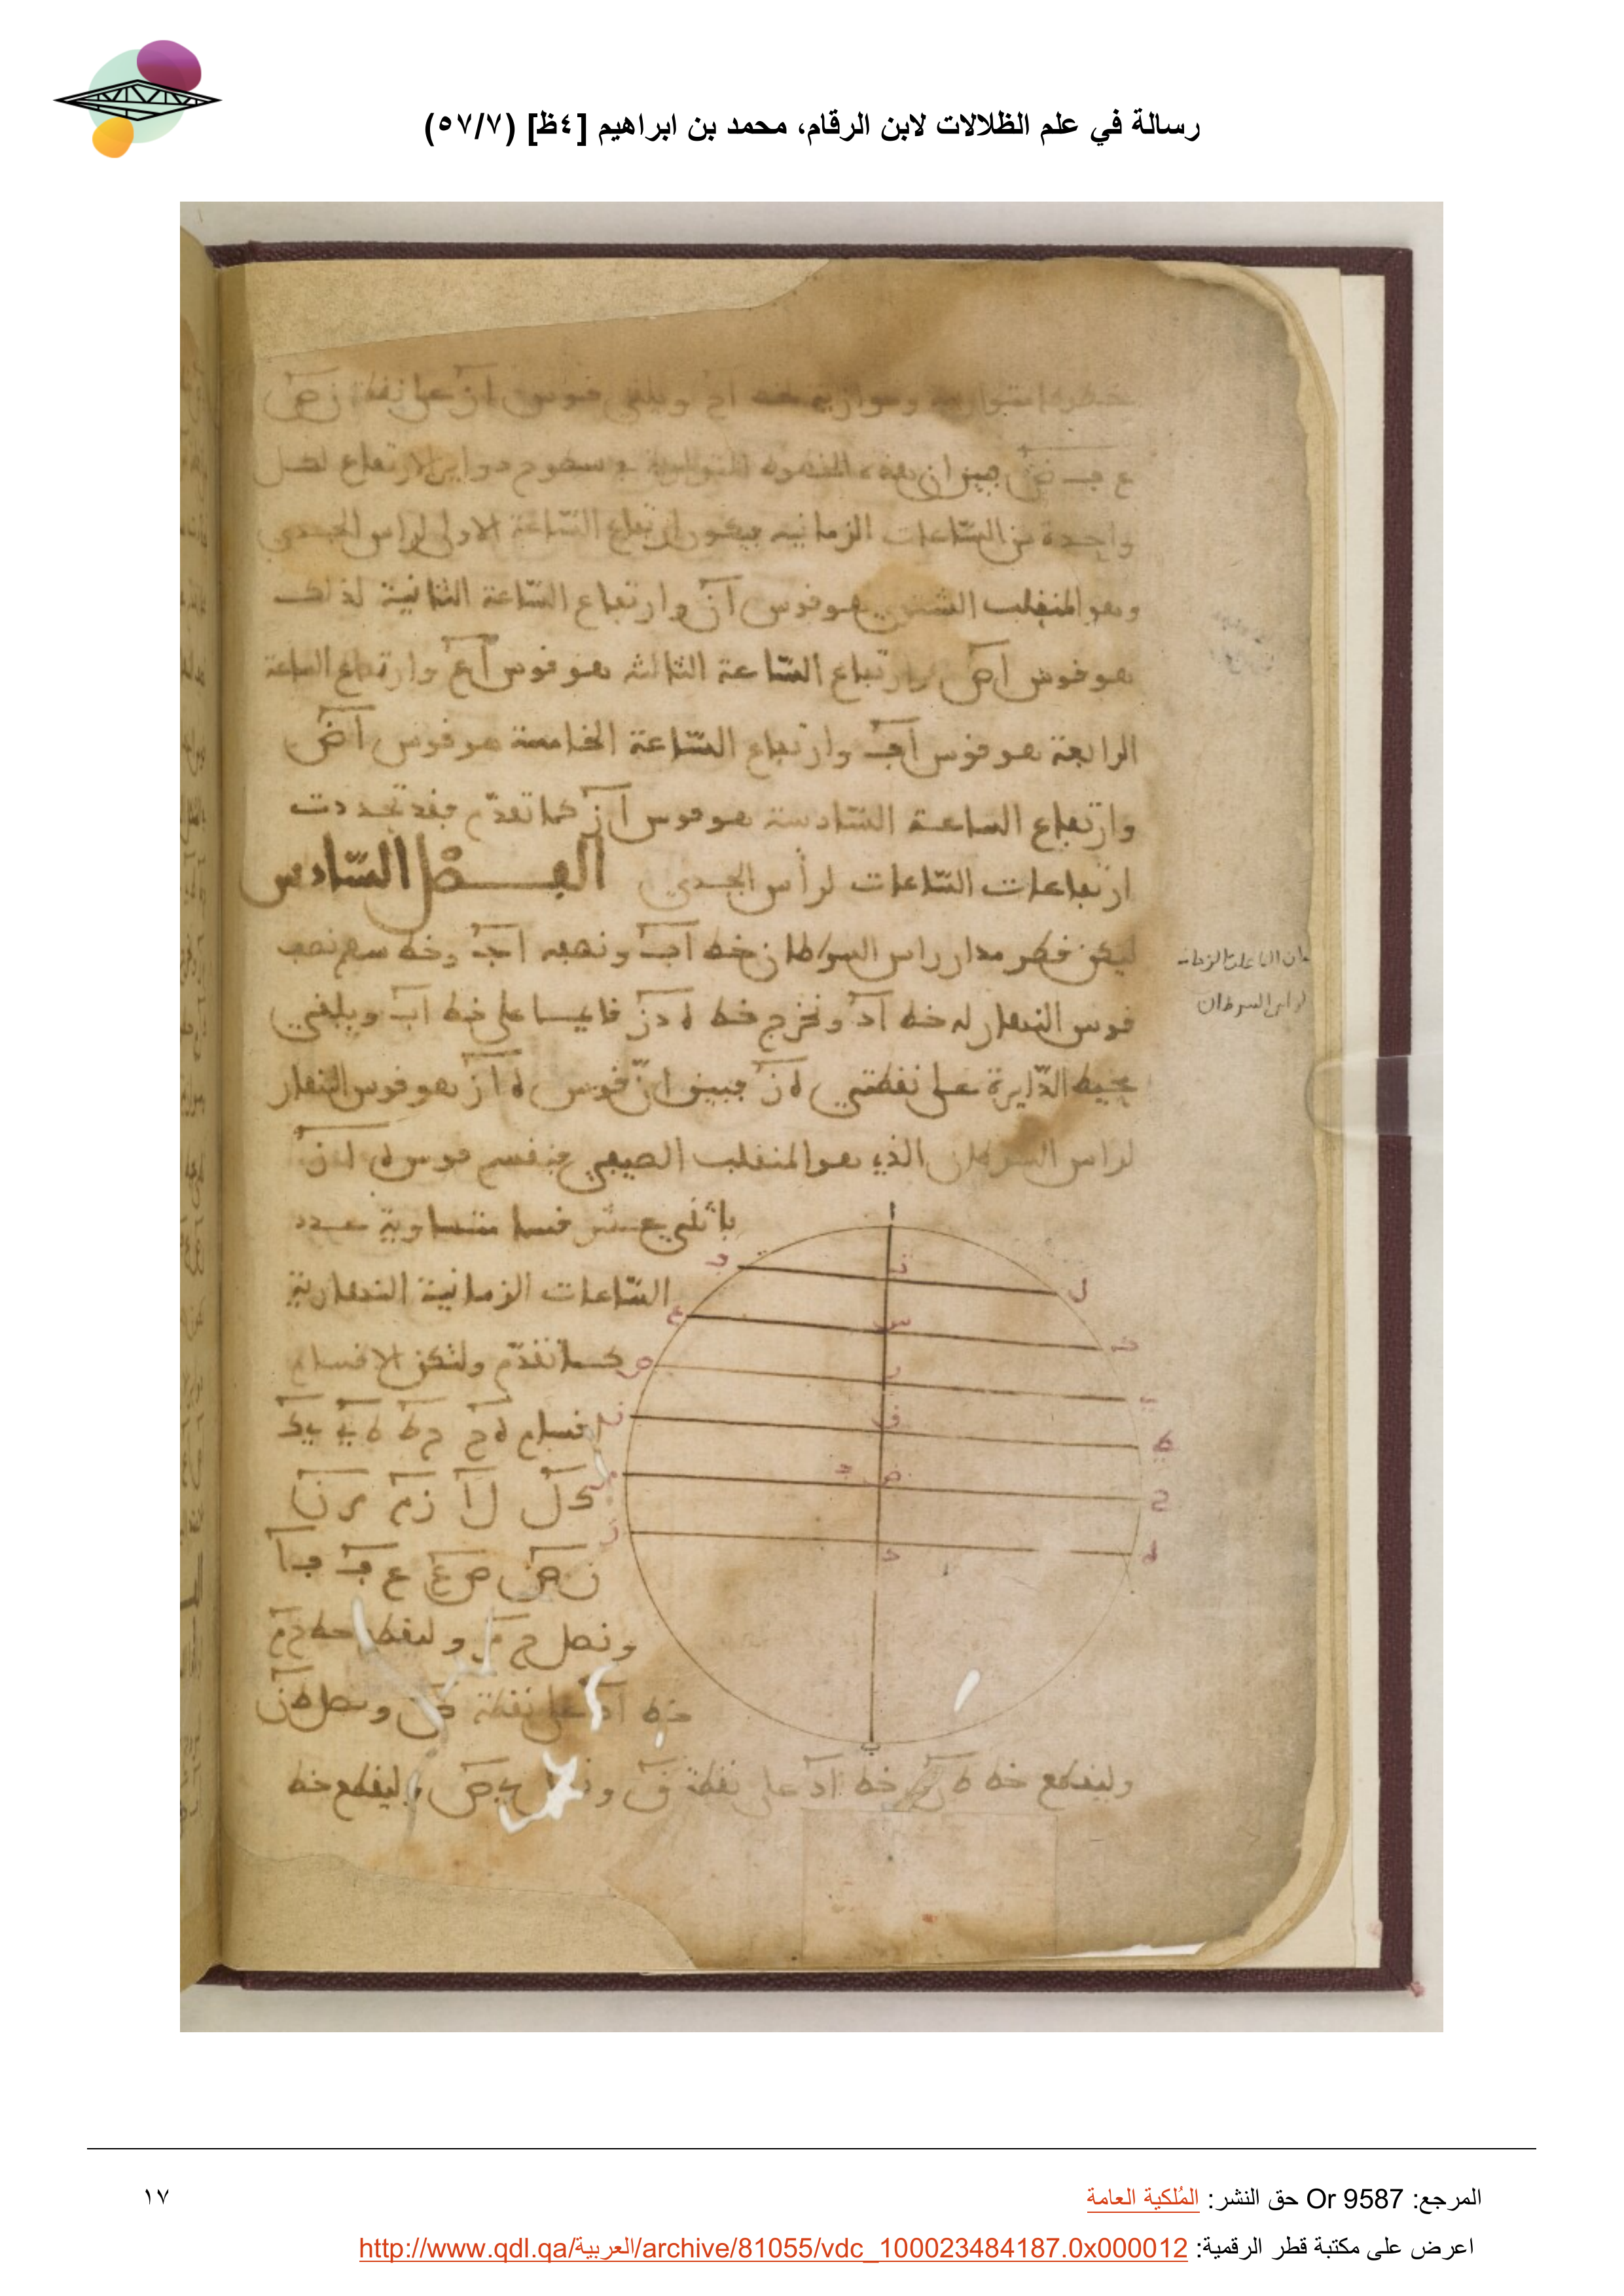 رسالة في علم الظلالات لابن الرقام، محمد بن ابراهيم [٤ظ] (٥٧/٧)
وبلقى فوس ان على نقط ن ص
ع ف ض فبين ان هذه الخطوط المتوازية في سطوح دواير الارتفاع لكل
واحدة من الساعات الزمانية فيكون ارتفاع الساعة الاولى لراس الجدي
وهو المنقلب الشتوي هو قوس ان وارتفاع الساعة الثانية لذلك
هو قوس اص وارتفاع الساعة الثالثة هو قوس اع وارتفاع الساعة
الرابعة هو قوس اف وارتفاع الساعة الخامسة هو قوس اض
وارتفاع الساعة السادسة هو قوس از كما تقدم فقد تحددت
ارتفاعات الساعات لراس الجدي الفصل السادس
ليكن قطر مدار راس السرطان خط اب ونصفه اج وخط سهم نصف
قوس النهار له خط اد ونخرج خط ه د ز قايما على خط اب ويلقى
محيط الدايرة على نقطتي ه ز فبين ان قوس ه ا ز هو قوس النهار
لراس السرطان الذي هو المنقلب الصيفي فنقسم قوس ه ا ز
باثني عشر قسما متساوية عدد
الساعات الزمانية النهارية
كما تقدم ولتكن الاقسام
اقسام ه ح ح ط ط ي ي ك
ك ل ل ا ز م م ن
ن ص ص ع ع ف ف ا
ونصل ح م وليقطع خط ح م
خط اد على نقطة ض ونصل ط ن
وليقطع خط ط ن خط اد على نقطة ق ونصل ي ص وليقطع خط
الساعات الزمانية
لراس السرطان
المرجع: Or 9587 حق النشر: المُلكية العامة
١٧
اعرض على مكتبة قطر الرقمية: http://www.qdl.qa/العربية/archive/81055/vdc_100023484187.0x000012